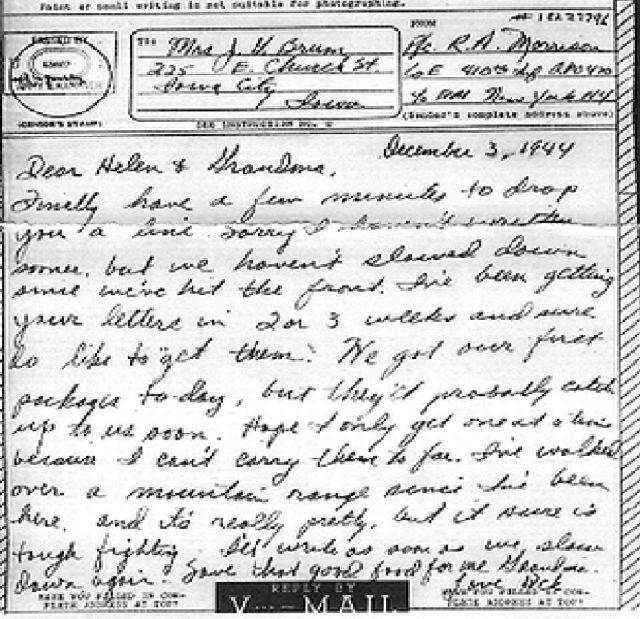 Paint or small writing is not suitable for photographing.
# 1 EA 27796
TO:
FROM
Mrs J. V. Brum
Pfc. R. A. Morrison
225 E. Church St.
Co E 410th Inf. APO 470
Iowa City
c/o P.M. New York N.Y.
Iowa
(CENSOR'S STAMP)
SEE INSTRUCTION NO. 2
(Sender's complete address above)
December 3, 1944
Dear Helen & Grandma,
Finally have a few minutes to drop
you a line sorry I haven't written
sooner, but we haven't slowed down
since we've hit the front. I've been getting
your letters in 2 or 3 weeks and sure
do like to get them. We got our first
packages to-day, but they'll probably catch
up to us soon. Hope I only get one at a time
because I can't carry them to far. I've walked
over a mountain range since I've been
here, and it's really pretty, but it sure is
tough fighting. I'll write as soon as we slow
down again. Save that good food for me Grandma.
Love
HAVE YOU FILLED IN COM-
PLETE ADDRESS AT TOP?
REPLY BY
V···–MAIL
HAVE YOU FILLED IN COM-
PLETE ADDRESS AT TOP?